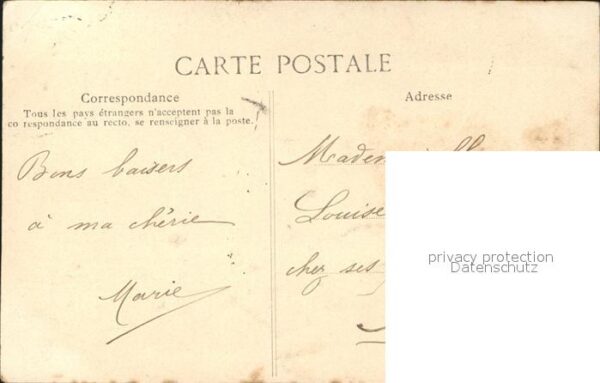 CARTE POSTALE
Correspondance
Tous les pays étrangers n'acceptent pas la
co respondance au recto, se renseigner à la poste.
Bons baisers
à ma chérie
Marie
Adresse
Louise
chez ses
privacy protection
Datenschutz